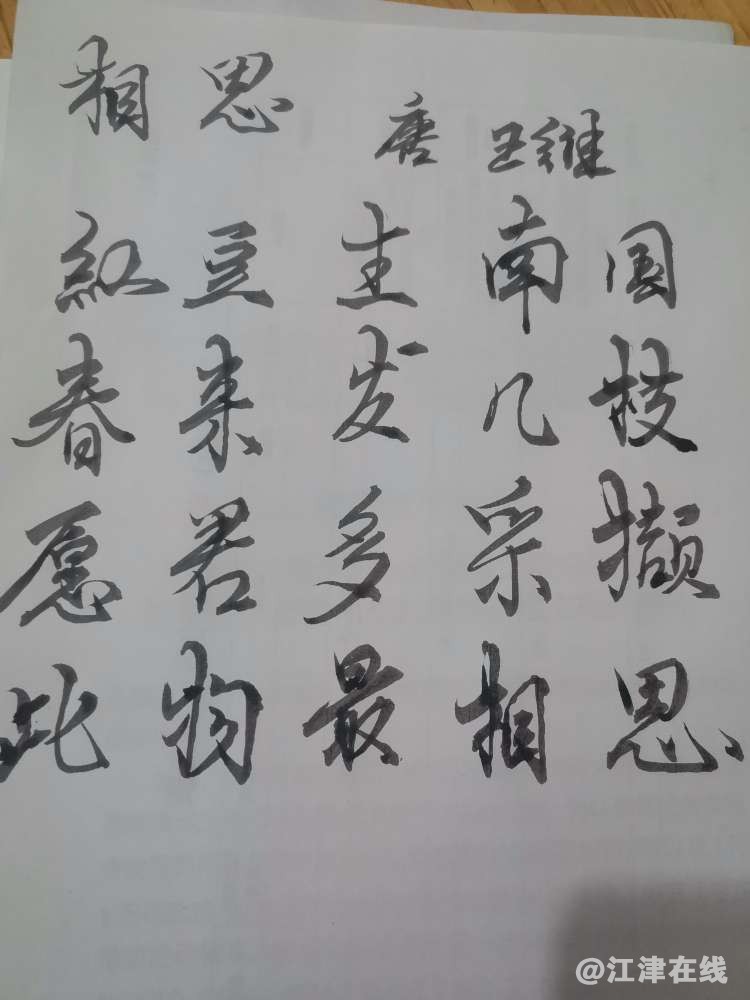 相思
唐 王维
红豆生南国
春来发几枝
愿君多采撷
此物最相思
@江津在线